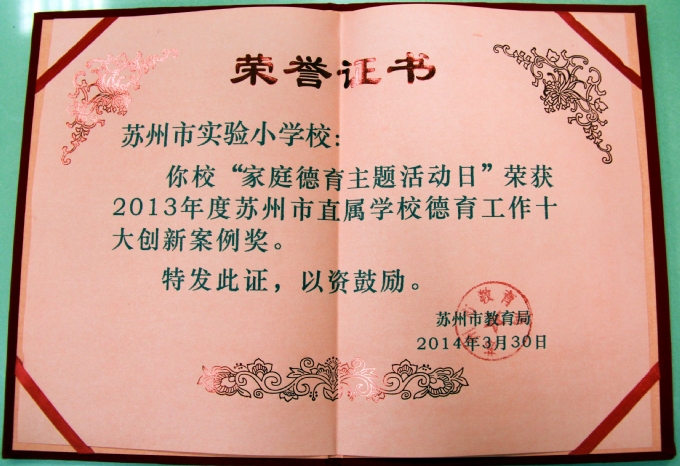 荣誉证书
苏州市实验小学校：
你校“家庭德育主题活动日”荣获
2013年度苏州市直属学校德育工作十
大创新案例奖。
特发此证，以资鼓励。
苏州市教育局
2014年3月30日